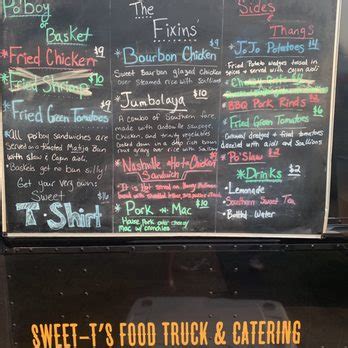 Po'Boy
&
Basket
*Fried Chicken $9
*Fried Shrimp $10
*Fried Green Tomatoes $9
*All po'boy sandwiches are
Served on a toasted Bun
with slaw & Cajun aioli.
*Baskets get no bun silly!
Get your very own:
Sweet
T-Shirt
The
Fixins'
*Bourbon Chicken $9
Sweet Bourbon glazed Chicken
over Steamed rice with Scallions
*Jumbolaya $10
A combo of Southern fare
made with andouille Sausage,
Chicken, and trinity vegetables
Cooked down in a deep rich brown
roux gravy over rice with Scallions
*Nashville Hot Chicken $9
Sandwich
*Pork n Mac $10
House Pork over cheesy
Mac w/ cracklins
Sides
&
Thangs
*JoJo Potatoes $4
Fried Potato wedges tossed in
spice & served with Cajun aioli
*BBQ Pork Rinds $2
*Fried Green Tomatoes
Cornmeal dredged & fried tomatoes
drizzled with aioli and Scallions
*Po'Slaw $2
*Drinks $2
- Lemonade
- Southern Sweet Tea
- Bottled Water
SWEET-T'S FOOD TRUCK & CATERING